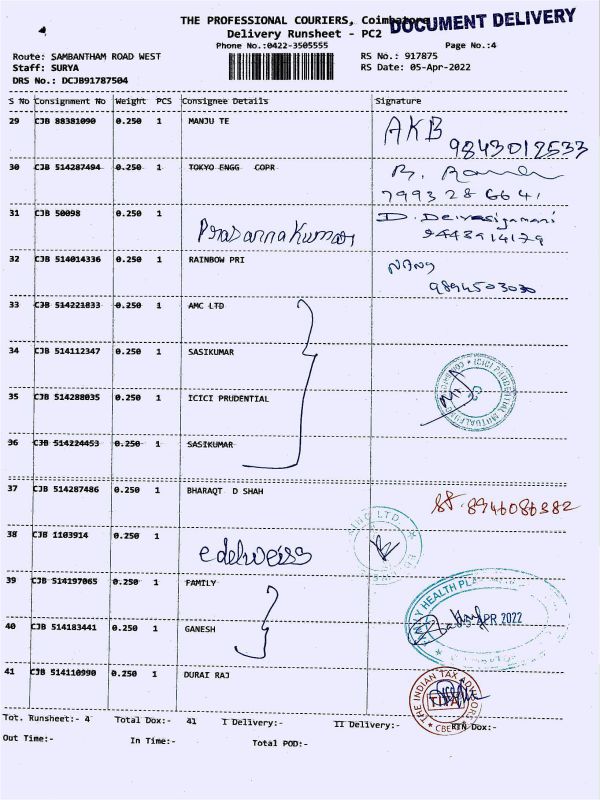 THE PROFESSIONAL COURIERS, Coimbatore
DOCUMENT DELIVERY
Delivery Runsheet - PC2
Phone No.:0422-3505555 Page No.:4
Route: SAMBANTHAM ROAD WEST RS No.: 917875
Staff: SURYA RS Date: 05-Apr-2022
DRS No.: DCJB91787504
S No Consignment No Weight PCS Consignee Details Signature
29 CJB 88381090 0.250 1 MANJU TE AKB
9843012533
30 CJB 514287494 0.250 1 TOKYO ENGG COPR
7993286641
31 CJB 50098 0.250 1 D. Deivasigamani
Prasanna Kumar 9443914179
32 CJB 514014336 0.250 1 RAINBOW PRI
9894503030
33 CJB 514221833 0.250 1 AMC LTD
34 CJB 514112347 0.250 1 SASIKUMAR
35 CJB 514288035 0.250 1 ICICI PRUDENTIAL
ICICI PRUDENTIAL MUTUAL
36 CJB 514224453 0.250 1 SASIKUMAR
37 CJB 514287486 0.250 1 BHARAQT D SHAH
8946086382
38 CJB 1103914 0.250 1
edelweiss
LTD.
39 CJB 514197065 0.250 1 FAMILY
HEALTH
APR 2022
40 CJB 514183441 0.250 1 GANESH
41 CJB 514110990 0.250 1 DURAI RAJ
THE INDIAN TAX ADVISORS
CBE
Tot. Runsheet:- 4 Total Dox:- 41 I Delivery:- II Delivery:- RTN Dox:-
Out Time:- In Time:- Total POD:-